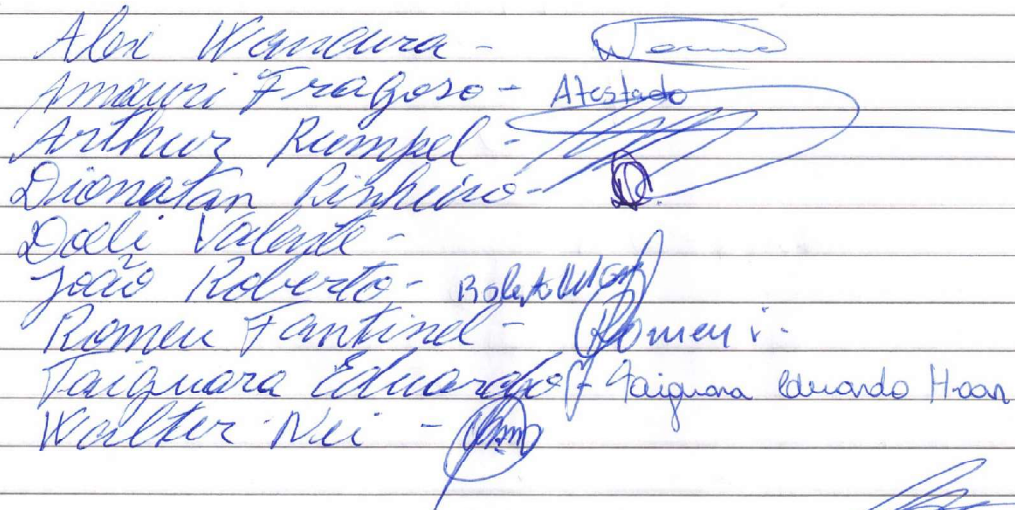 Alex Wandura -
Amauri Fragoso - Atestado
Arthur Rumpel -
Dionatan Pinheiro -
Doeli Valente -
João Roberto - Roberto
Romeu Fantinel - Romeu
Taiguara Eduardo - Taiguara Eduardo Haas
Walter Nei -